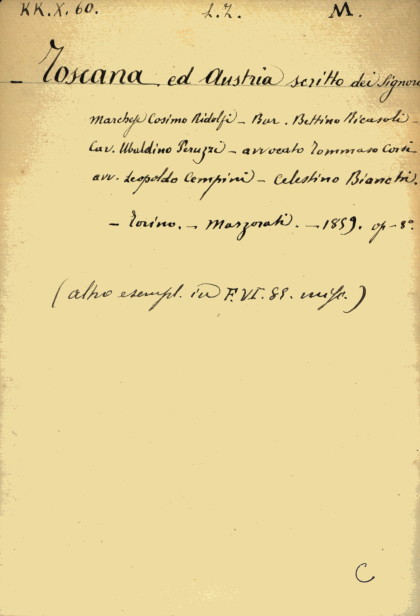 KK.X.60. L.Z. M.
— Toscana ed Austria scritto dei Signori
Marchese Cosimo Ridolfi — Bar. Bettino Ricasoli —
Cav. Ubaldino Peruzzi — avvocato Tommaso Corsi —
avv. Leopoldo Cempini — Celestino Bianchi.
— Torino. — Marzorati. — 1859. op — 8°.
(altro esempl. in F.VI.89. misc.)
C